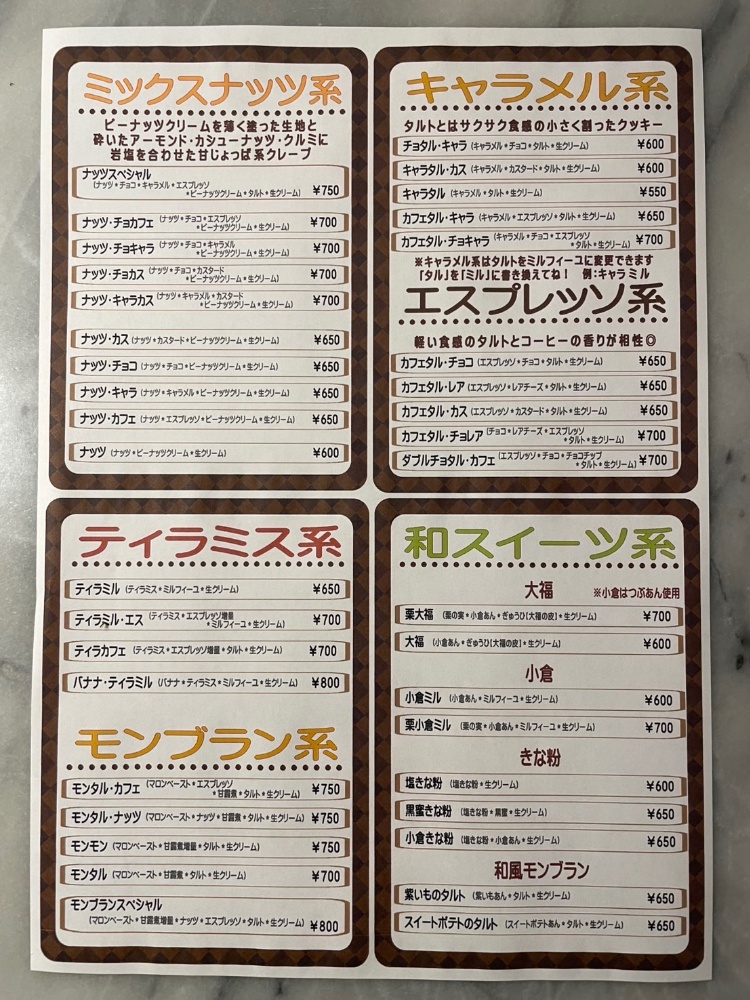 ミックスナッツ系
ピーナッツクリームを薄く塗った生地と
砕いたアーモンド・カシューナッツ・クルミに
岩塩を合わせた甘じょっぱ系クレープ
ナッツスペシャル
(ナッツ*チョコ*キャラメル*エスプレッソ
*ピーナッツクリーム*タルト*生クリーム) ¥750
ナッツ・チョカフェ (ナッツ*チョコ*エスプレッソ
*ピーナッツクリーム*生クリーム) ¥700
ナッツ・チョキャラ (ナッツ*チョコ*キャラメル
*ピーナッツクリーム*生クリーム) ¥700
ナッツ・チョカス (ナッツ*チョコ*カスタード
*ピーナッツクリーム*生クリーム) ¥700
ナッツ・キャラカス (ナッツ*キャラメル*カスタード
*ピーナッツクリーム*生クリーム) ¥700
ナッツ・カス (ナッツ*カスタード*ピーナッツクリーム*生クリーム) ¥650
ナッツ・チョコ (ナッツ*チョコ*ピーナッツクリーム*生クリーム) ¥650
ナッツ・キャラ (ナッツ*キャラメル*ピーナッツクリーム*生クリーム) ¥650
ナッツ・カフェ (ナッツ*エスプレッソ*ピーナッツクリーム*生クリーム) ¥650
ナッツ (ナッツ*ピーナッツクリーム*生クリーム) ¥600
キャラメル系
タルトとはサクサク食感の小さく割ったクッキー
チョタル・キャラ (キャラメル*チョコ*タルト*生クリーム) ¥600
キャラタル・カス (キャラメル*カスタード*タルト*生クリーム) ¥600
キャラタル (キャラメル*タルト*生クリーム) ¥550
カフェタル・キャラ (キャラメル*エスプレッソ*タルト*生クリーム) ¥650
カフェタル・チョキャラ (キャラメル*チョコ*エスプレッソ
*タルト*生クリーム) ¥700
※キャラメル系はタルトをミルフィーユに変更できます
「タル」を「ミル」に書き換えてね! 例:キャラミル
エスプレッソ系
軽い食感のタルトとコーヒーの香りが相性◎
カフェタル・チョコ (エスプレッソ*チョコ*タルト*生クリーム) ¥650
カフェタル・レア (エスプレッソ*レアチーズ*タルト*生クリーム) ¥650
カフェタル・カス (エスプレッソ*カスタード*タルト*生クリーム) ¥650
カフェタル・チョレア (チョコ*レアチーズ*エスプレッソ
*タルト*生クリーム) ¥700
ダブルチョタル・カフェ (エスプレッソ*チョコ*チョコチップ
*タルト*生クリーム) ¥700
ティラミス系
ティラミル (ティラミス*ミルフィーユ*生クリーム) ¥650
ティラミル・エス (ティラミス*エスプレッソ増量
*ミルフィーユ*生クリーム) ¥700
ティラカフェ (ティラミス*エスプレッソ増量*タルト*生クリーム) ¥700
バナナ・ティラミル (バナナ*ティラミス*ミルフィーユ*生クリーム) ¥800
モンブラン系
モンタル・カフェ (マロンペースト*エスプレッソ
*甘露煮*タルト*生クリーム) ¥750
モンタル・ナッツ (マロンペースト*ナッツ*甘露煮*タルト*生クリーム) ¥750
モンモン (マロンペースト*甘露煮増量*タルト*生クリーム) ¥750
モンタル (マロンペースト*甘露煮*タルト*生クリーム) ¥700
モンブランスペシャル
(マロンペースト*甘露煮増量*ナッツ*エスプレッソ*タルト*生クリーム) ¥800
和スイーツ系
大福 ※小倉はつぶあん使用
栗大福 (栗の実*小倉あん*ぎゅうひ[大福の皮]*生クリーム) ¥700
大福 (小倉あん*ぎゅうひ[大福の皮]*生クリーム) ¥600
小倉
小倉ミル (小倉あん*ミルフィーユ*生クリーム) ¥600
栗小倉ミル (栗の実*小倉あん*ミルフィーユ*生クリーム) ¥700
きな粉
塩きな粉 (塩きな粉*生クリーム) ¥600
黒蜜きな粉 (塩きな粉*黒蜜*生クリーム) ¥650
小倉きな粉 (塩きな粉*小倉あん*生クリーム) ¥650
和風モンブラン
紫いものタルト (紫いもあん*タルト*生クリーム) ¥650
スイートポテトのタルト (スイートポテトあん*タルト*生クリーム) ¥650